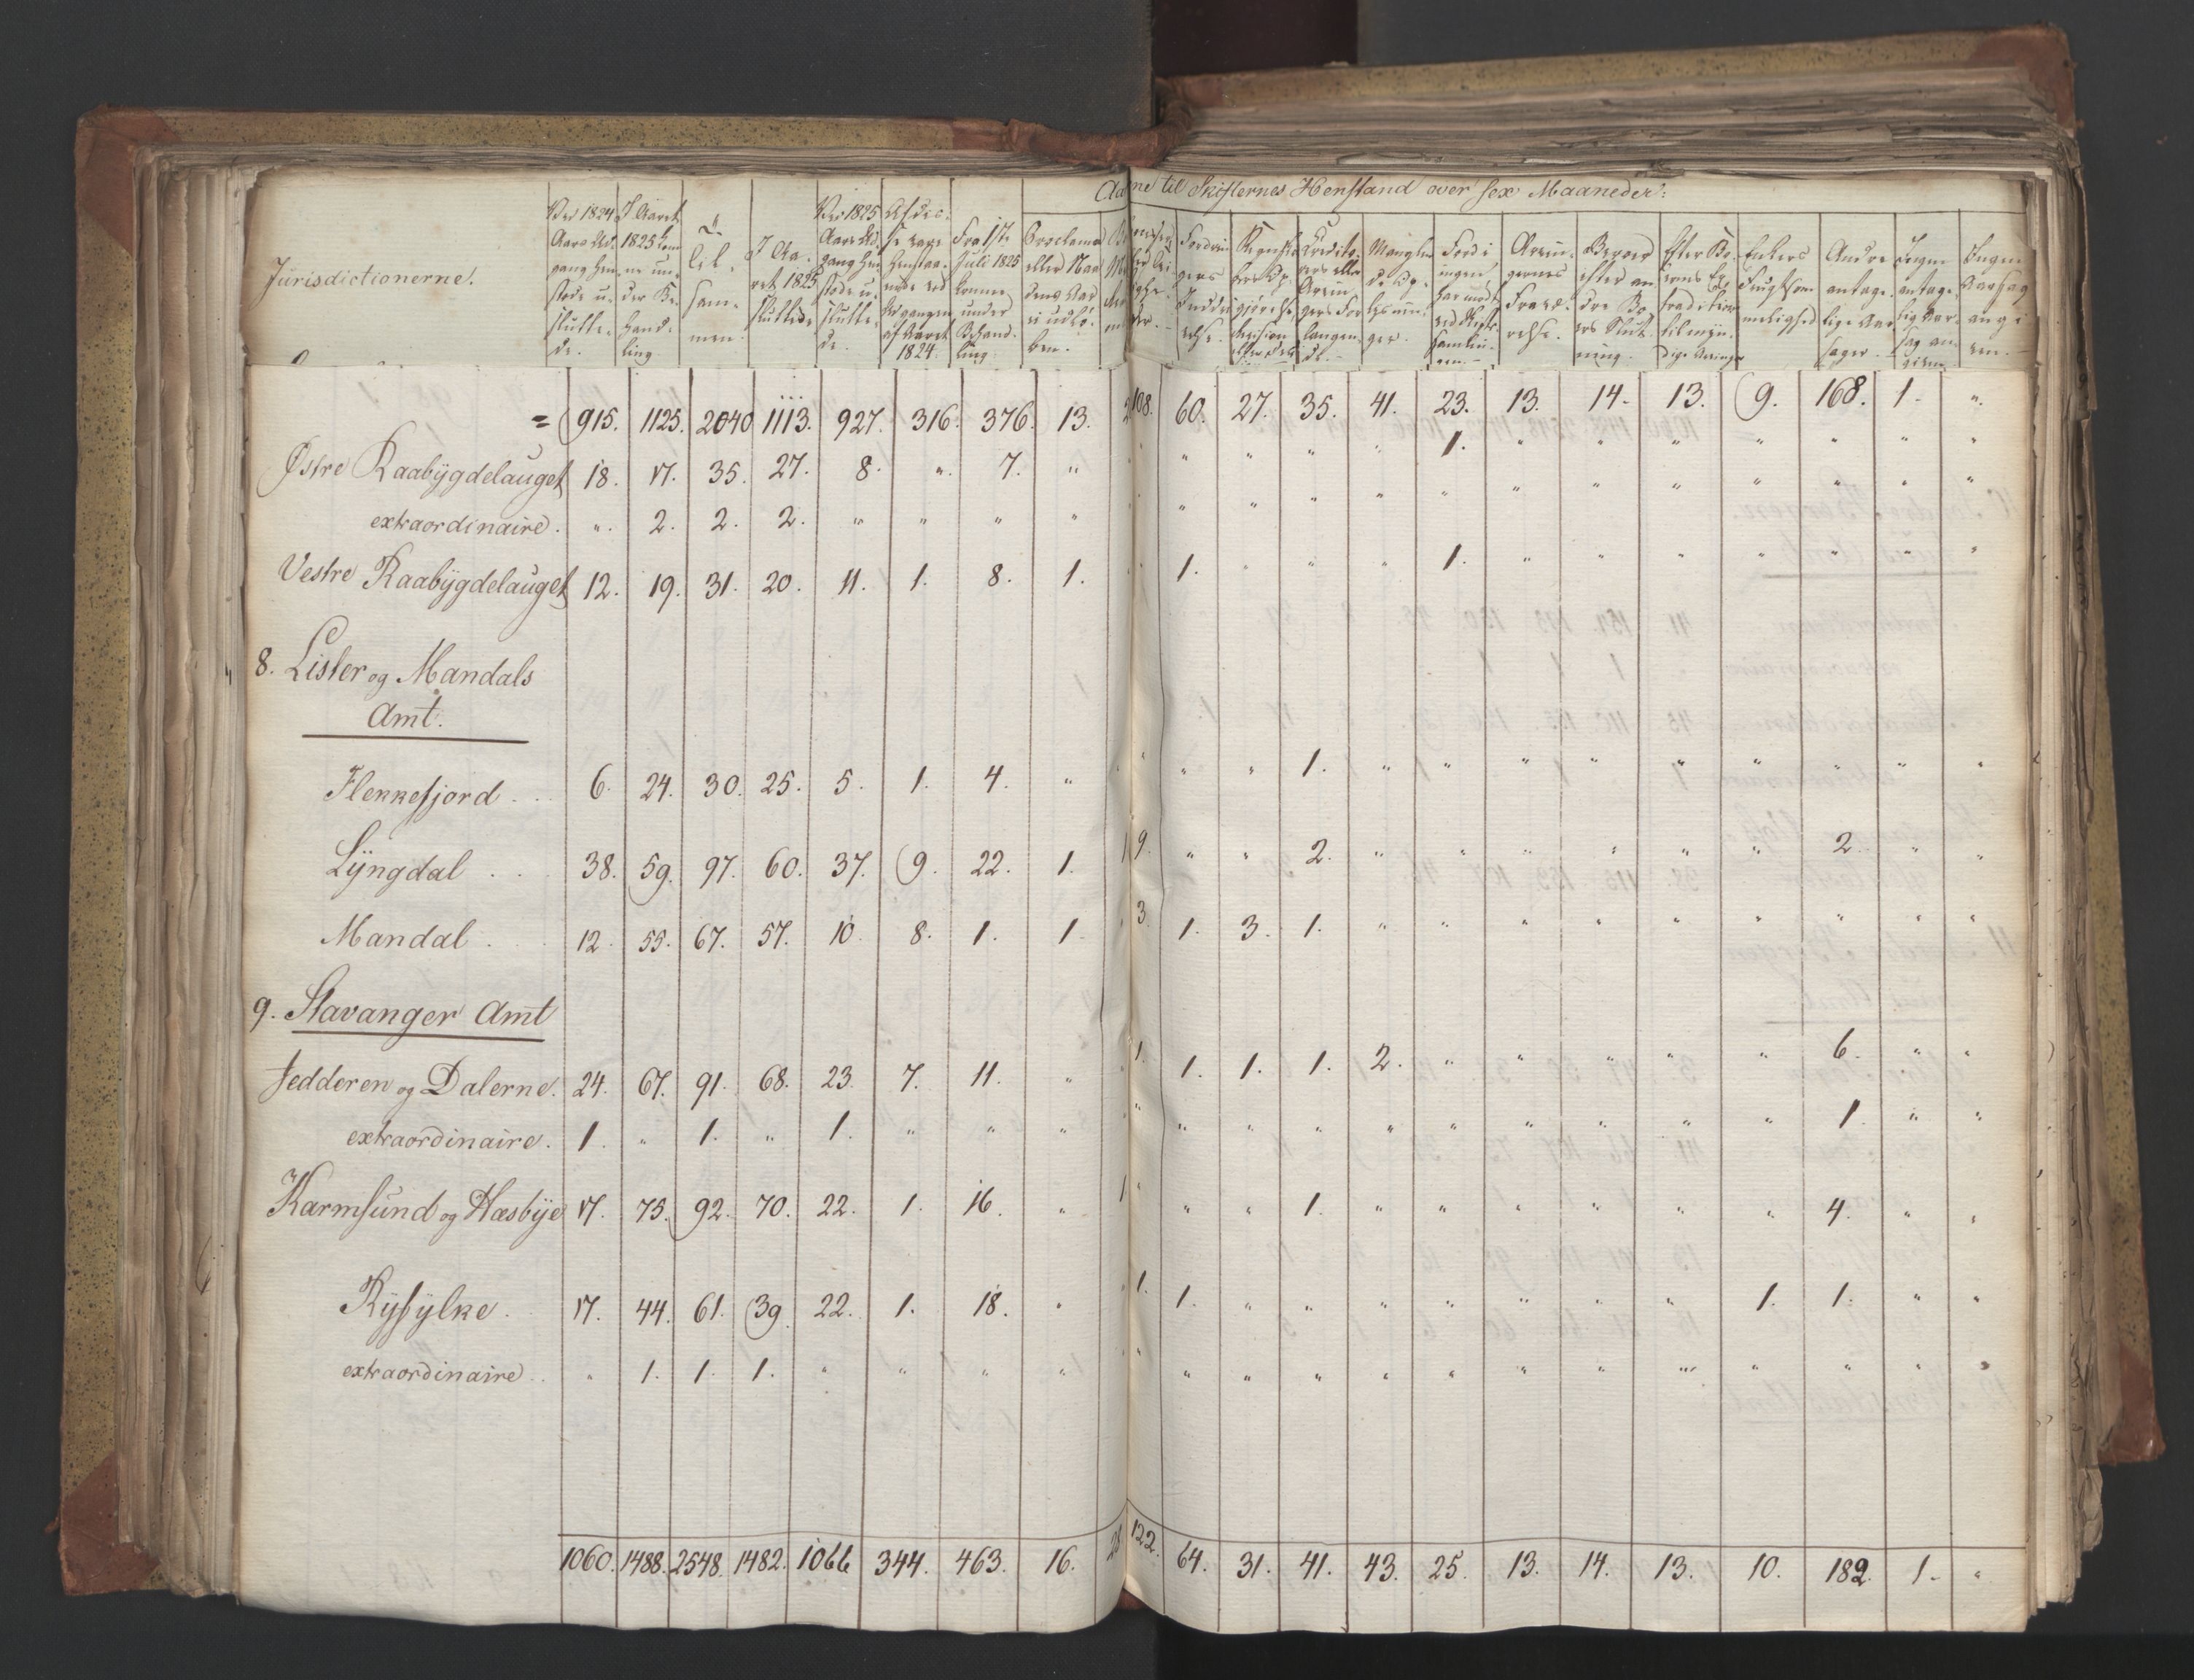 ne til Skifternes Henstand over sex Maaneder:
Jurisdictionerne.
Ved 1824 Aars Ud- gang hen- stode u- slutte- de.
I Aaret 1825 kom- ne un- der Be- hand- ling.
til- sam- men.
I Aa- ret 1825 sluttede
Ved 1825 Aars Ud- gang hen- stode u- slutte- de.
Af dis- se vare henstaa- ende ved Udgangen af Aaret 1824.
Fra 1ste Juli 1825 komne under Behand- ling.
Proclama eller
Fordrin- gers Inddri- velse.
Mangler
Arvin- gernes Fravæ- relse.
Enkers Frugtsom- melighed
Andre antage- lige Aar- sager.
Ingen antage- lig Aar- sag an- given.
Ingen Aarsag angi- ven.
= 915. 1125. 2040 1113. 927. 316. 376. 13. 2 108. 60. 27. 35. 41. 23. 13. 14. 13. 9. 168. 1. "
Østre Raabÿgdelauget 18. 17. 35. 27. 8. " 7. " " " " " 1. " " " " " " "
extraordinaire. " 2. 2. 2. " " " " " " " " " " " " " " " "
Vestre Raabÿgdelauget 12. 19. 31. 20. 11. 1. 8. 1. 1. " " " 1. " " " " " " "
8. Lister og Mandals
Amt.
Flekkefjord 6. 24. 30. 25. 5. 1. 4. " " " 1. " " " " " " " " "
Lÿngdal 38. 59. 97. 60. 37. 9. 22. 1. 1 9. " " 2. " " " " " " 2. " "
Mandal 12. 55. 67. 57. 10. 8. 1. 1. 3. 1. 3. 1. " " " " " " " " "
9. Stavanger Amt
Jedderen og Dalerne. 24. 67. 91. 68. 23. 7. 11. " 1. 1. 1. 1. 2. " " " " " 6. " "
extraordinaire. 1. " 1. " 1. " " " " " " " " " " " " " 1. " "
Karmsund og Hæsbÿe 17. 75. 92. 70. 22. 1. 16. " 1 " " " 1. " " " " " " 4. " "
Rÿfÿlke 17. 44. 61. 39. 22. 1. 18. " 1. 1. " " " " " " " 1. 1. " "
extraordinaire " 1. 1. 1. " " " " " " " " " " " " " " " " "
1060. 1488. 2548. 1482. 1066 344. 463. 16. 28 122. 64. 31. 41. 43. 25. 13. 14. 13. 10. 182. 1. "